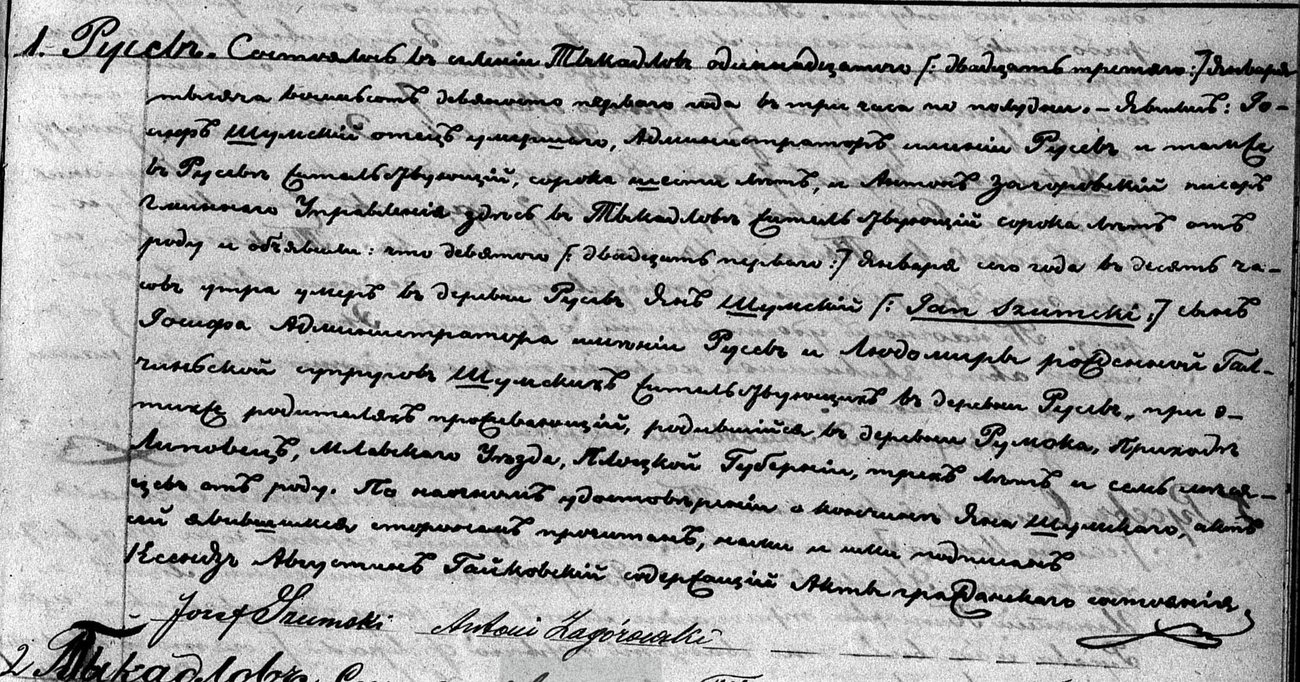 1. Русевъ. Состоялось въ имѣніи Тыкадловъ одиннадцатого /: двадцать третяго :/ Января
тысяча восемьсотъ девяносто перваго года въ три часа по полудни. – Явились: Іо-
сифъ Шумскій отецъ умершаго, Администраторъ имѣнія Русевъ и также
въ Русевѣ жительствующій, сорока шести лѣтъ, и Антонъ Загоровскій писарь
Гминнаго Управленія здѣсь въ Тыкадловѣ жительствующій сорока лѣтъ отъ
роду и объявили: что девятого /: двадцать перваго :/ Января сего года въ десять ча-
совъ утра умеръ въ деревни Русевъ Янъ Шумскій /: Jan Szumski :/ сынъ
Іосифа Администратора имѣнія Русевъ и Людомиры рожденной
супруговъ Шумскихъ жительствующихъ въ деревни Русевъ, при о-
родителяхъ проживающій, родившійся въ деревни Румока, Приходѣ
Липовецъ, Млавскаго Уѣзда, Плоцкой Губерніи, трехъ лѣтъ и семь мѣся-
цевъ отъ роду. По наочномъ удостовѣреніи о кончинѣ Яна Шумскаго, актъ
сей явившимся сторонамъ прочитанъ, нами и ими подписанъ
Ксендзъ Августинъ Гайковскій содержащій Акты гражданскаго состоянія
Józef Szumski Antoni Zagórowski
2 Тыкадловъ